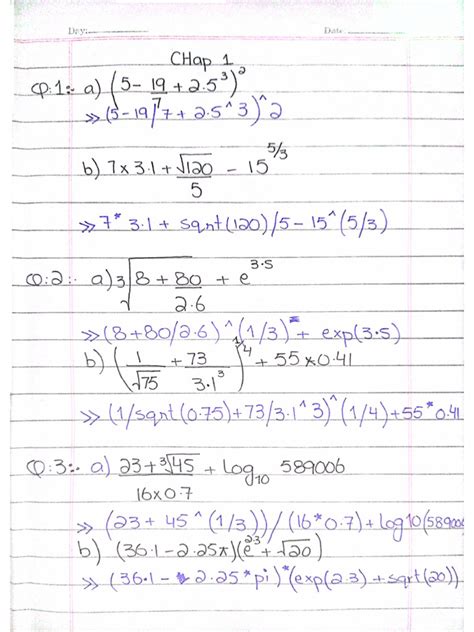 Day: Date
CHap 1
Q.1:- a) (5 - 19/7 + 2.5³)²
>> (5-19/7 + 2.5^3)^2
b) 7 x 3.1 + √120/5 - 15^5/3
>> 7*3.1 + sqnt(120)/5-15^(5/3)
Q:2:- a) ∛(8 + 80/2.6) + e^3.5
>> (8+80/2.6)^(1/3) + exp(3.5)
b) (1/√75 + 73/3.1³)^1/4 + 55 x 0.41
>> (1/sqnt(0.75)+73/3.1^3)^(1/4)+55*0.41
Q:3:- a) 23+³√45/16x0.7 + Log₁₀ 589006
>> (23 + 45^(1/3))/(16*0.7)+log10(589006
b) (36.1-2.25π)(e^23 + √20)
>> (36.1-2.25*pi)*(exp(2.3)+sqrt(20))